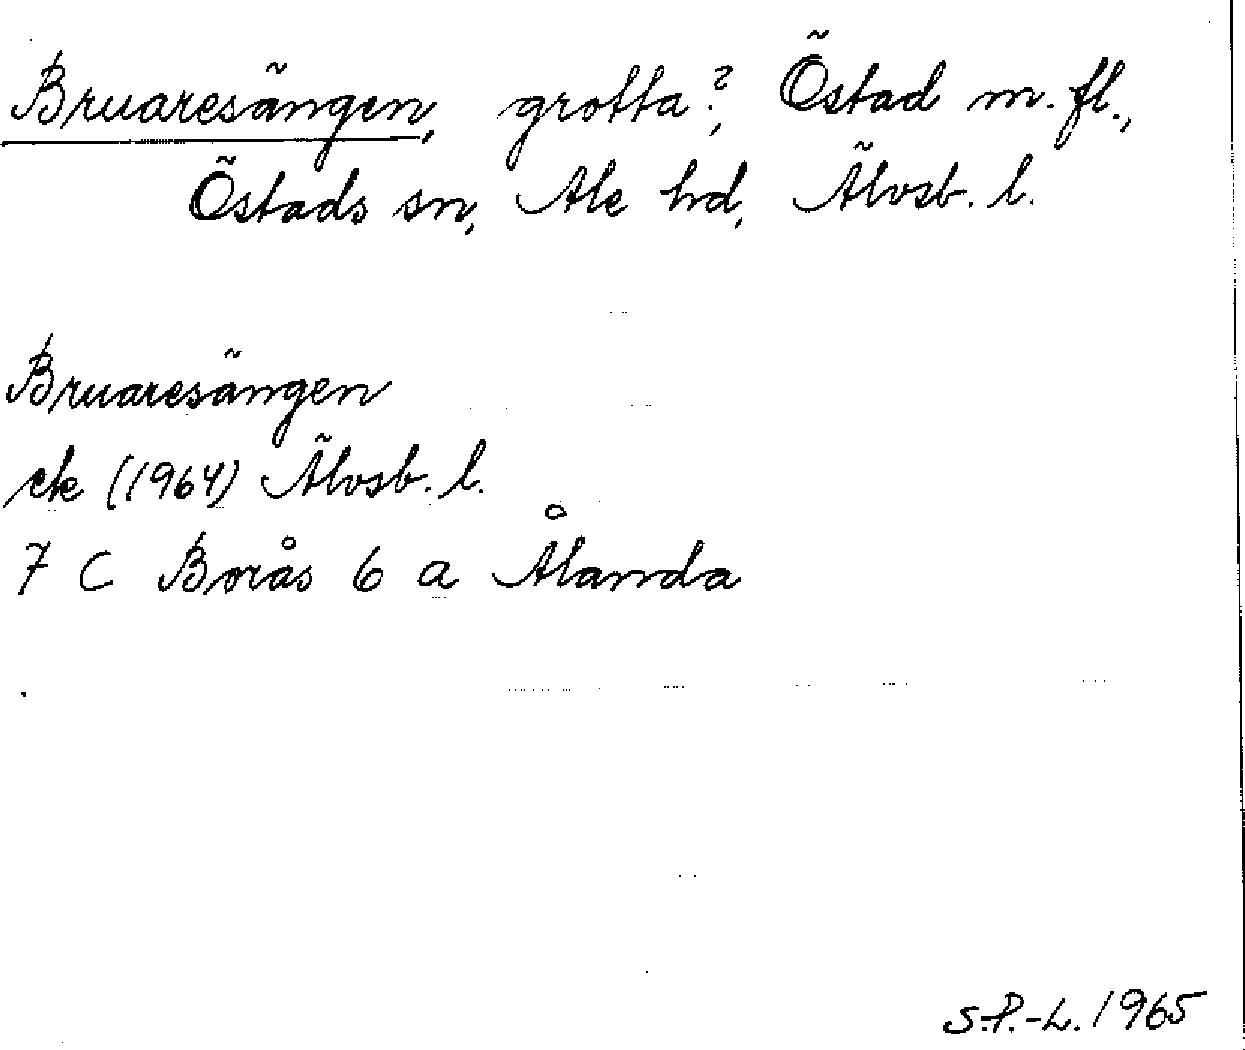 Bruaresängen, grotta?, Östad m. fl.,
Östads sn, Ale hd, Älvsb. l.
Bruaresängen
ek (1964) Älvsb. l.
7 C Borås 6 a Ålanda
S.P.-L. 1965